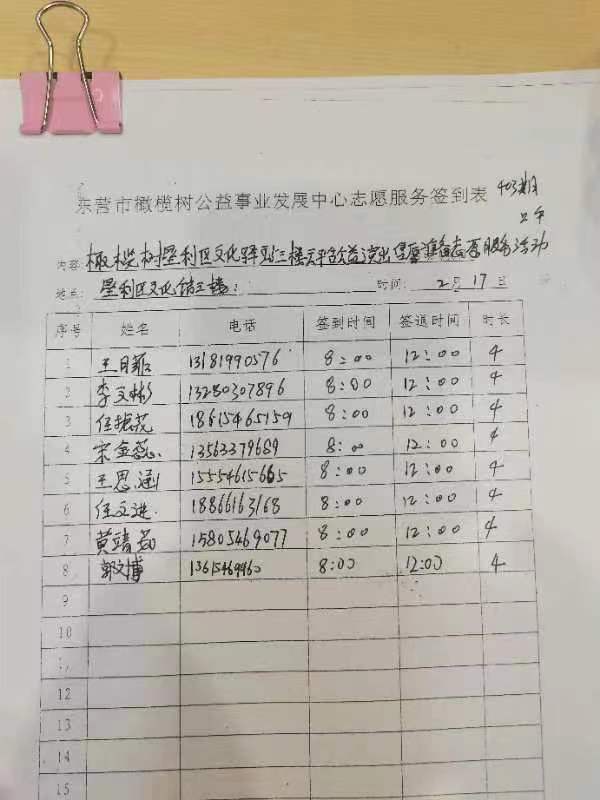 东营市橄榄树公益事业发展中心志愿服务签到表 403期
上午
内容: 橄榄树垦利区文化驿站三楼公益演出准备志愿服务活动
地点: 垦利区文化馆三楼 时间: 2月17日
序号 姓名 电话 签到时间 签退时间 时长
1 王月 13181990576 8:00 12:00 4
2 李文彬 13280307896 8:00 12:00 4
3 任振茂 18615465759 8:00 12:00 4
4 宋金蕊 13563379689 8:00 12:00 4
5 王思涵 15554615665 8:00 12:00 4
6 任文进 18866163168 8:00 12:00 4
7 黄靖茹 15805469077 8:00 12:00 4
8 郭文博 13615469960 8:00 12:00 4
9
10
11
12
13
14
15